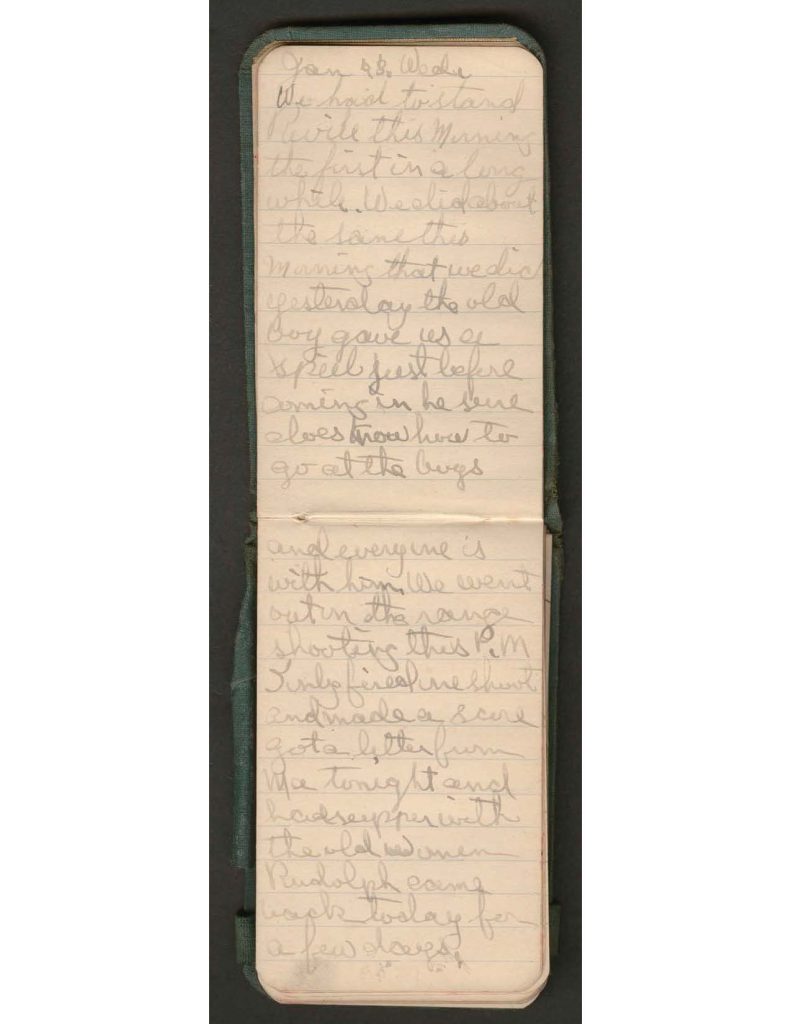 Jan 23. Wedn
We had to stand
Revile this Morning
the first in a long
while. We did about
the same this
Morning that we did
yesterday the old
boy gave us a
spiel just before
coming in he sure
does know how to
go at the boys
and everyone is
with him. We went
out in the range
shooting this P.M
I only fired one shoot
and made a score
got a letter from
Ma tonight and
had supper with
the old women
Rudolph came
back today for
a few days.